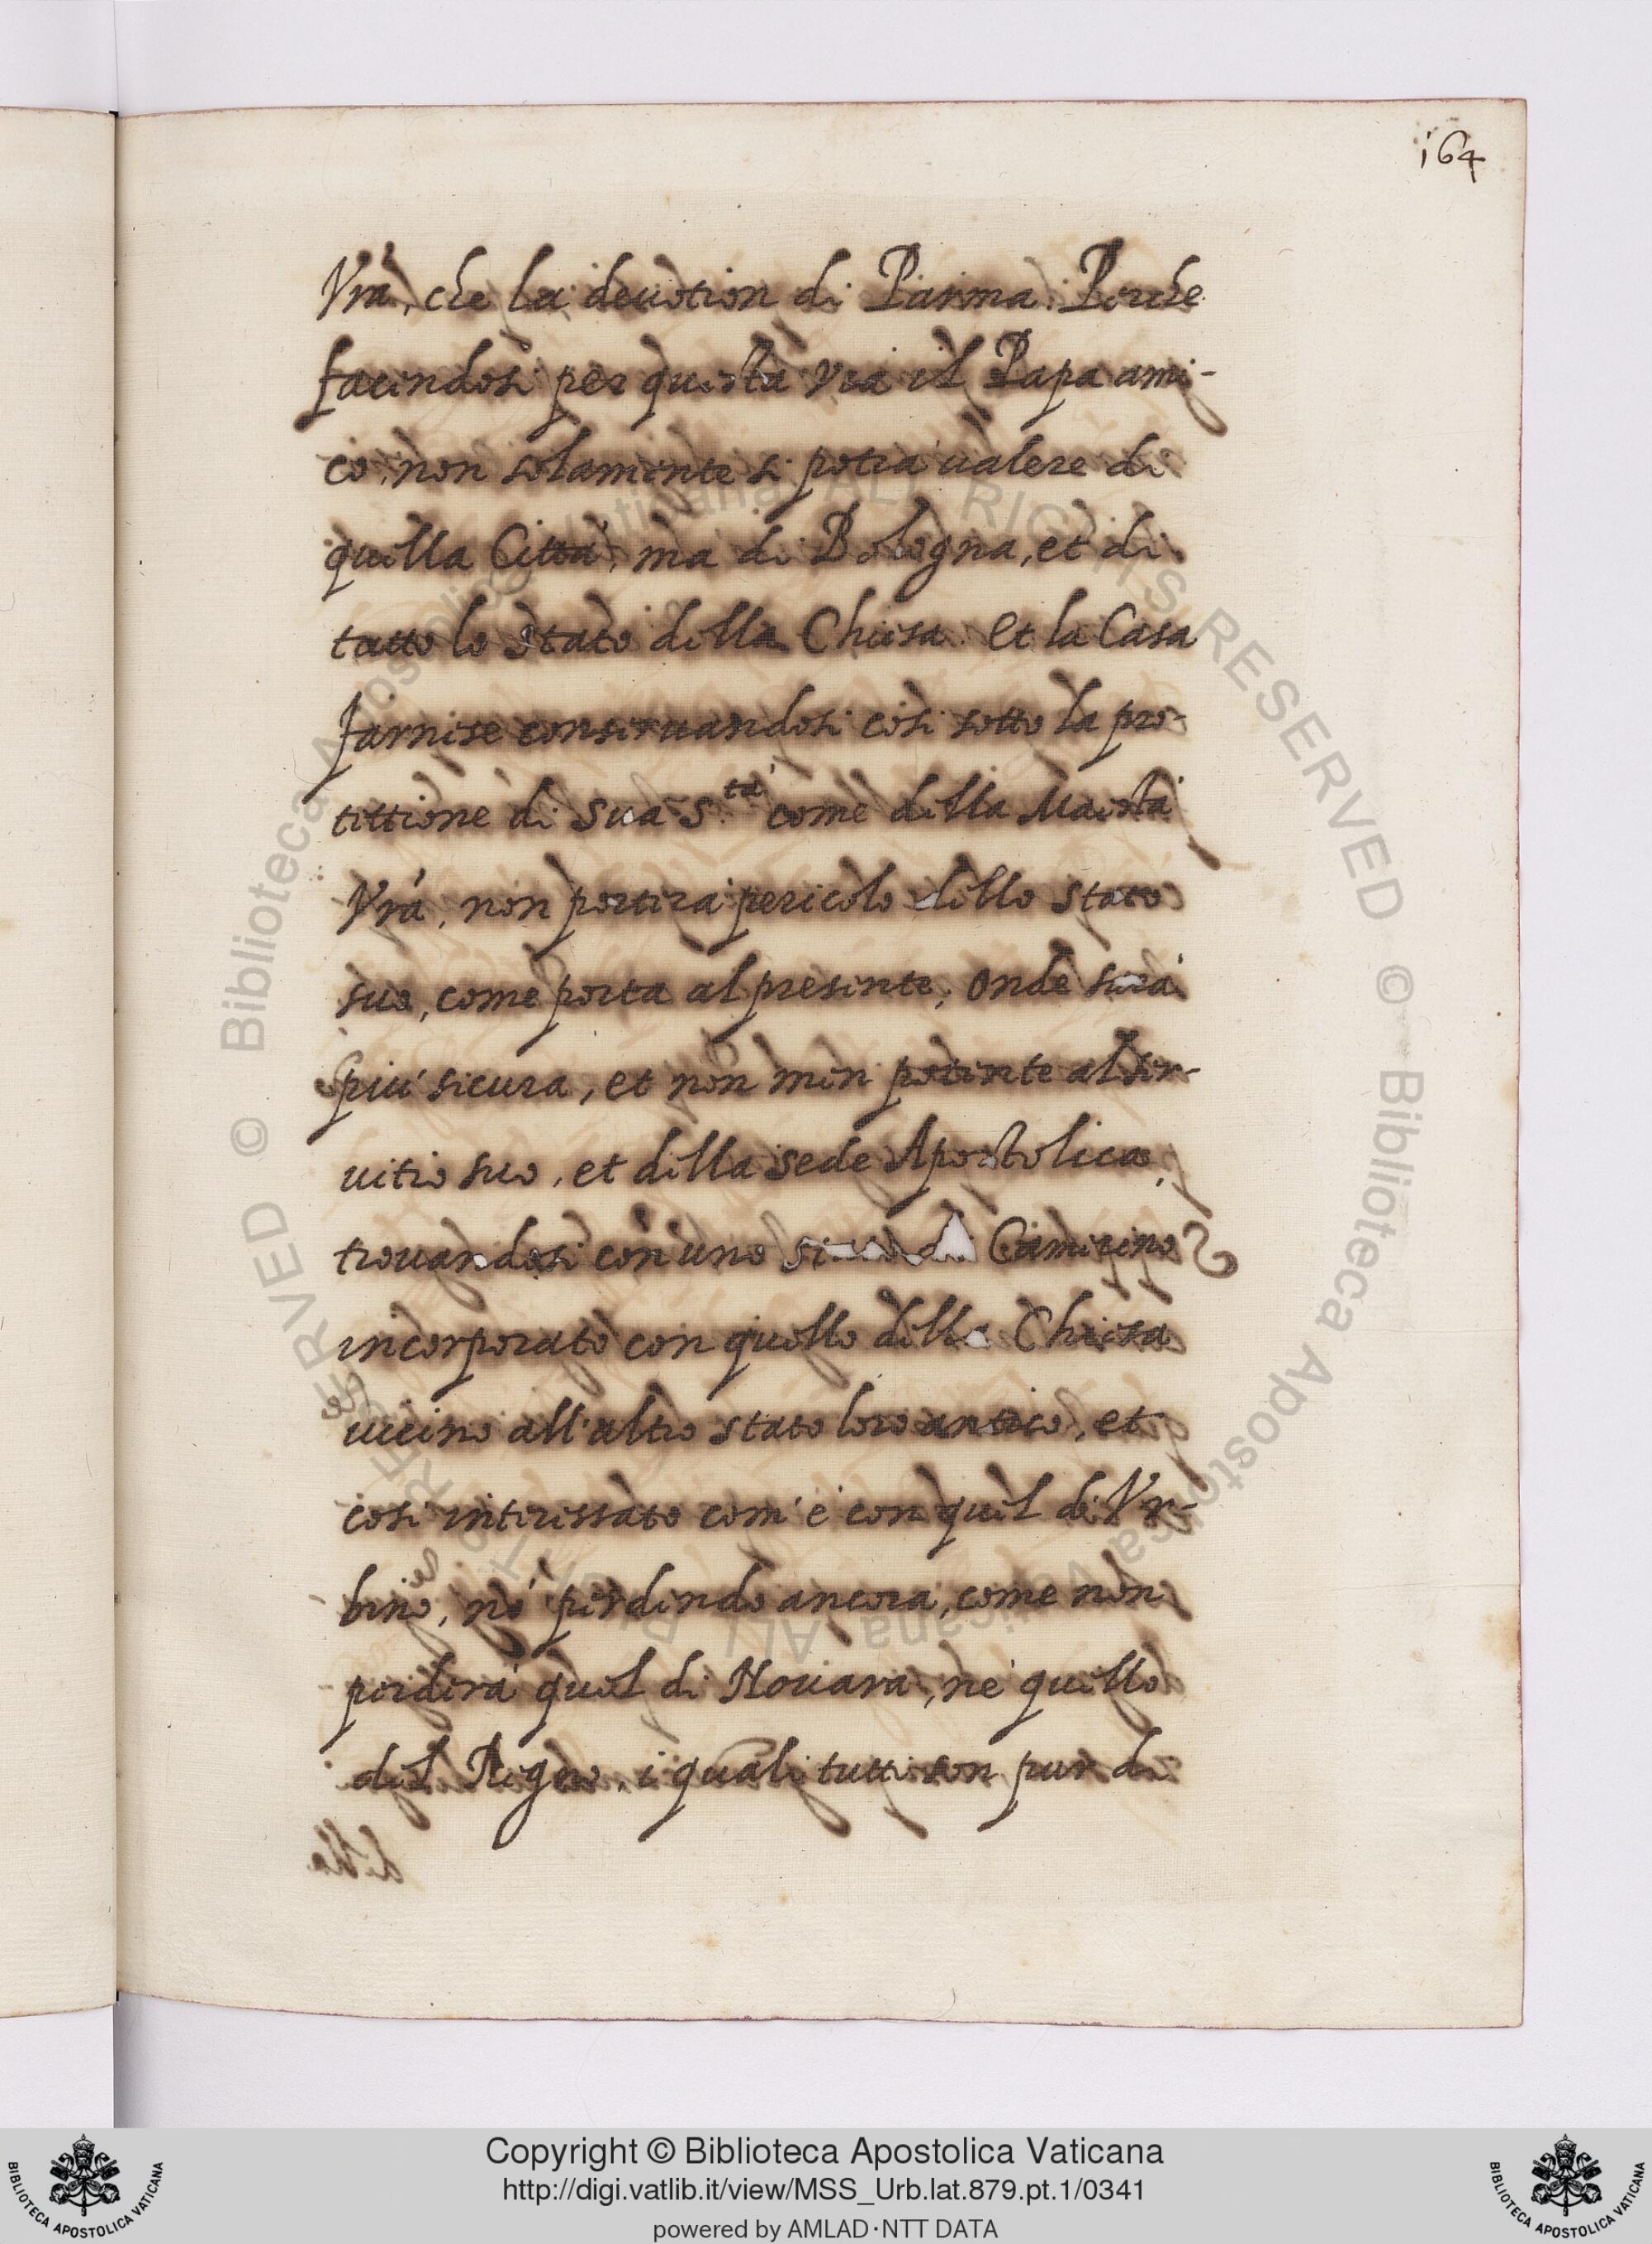 164
Vrã, che la deuotion di Parma. Perche
facendosi per questa via il Papa ami-
co, non solamente si potrà ualere di
quella Città, ma di Bologna, et di
tutto lo stato della Chiesa. Et la Casa
farnese conseruandosi così sotto la pro-
tettione di sua S.tà come della Maestà
Vrã, non porterà pericolo dello stato
suo, come porta al presente, onde sarà
più sicura, et non men potente al ser-
uitio suo, et della sede Apostolica,
trouandosi con uno di Camerino
incorporato con quello della Chiesa
uicino all'altro stato loro antico, et
così interessato com'è con quel di Vr-
bino, né perdendo ancora, come non
perderà quel di Nouara, né quello
del Regno, i quali tutti son pur di
© Biblioteca Apostolica Vaticana ALL RIGHTS RESERVED © Biblioteca Apostolica Vaticana ALL RIGHTS RESERVED
Copyright © Biblioteca Apostolica Vaticana
http://digi.vatlib.it/view/MSS_Urb.lat.879.pt.1/0341
powered by AMLAD·NTT DATA
BIBLIOTECA APOSTOLICA VATICANA
BIBLIOTECA APOSTOLICA VATICANA